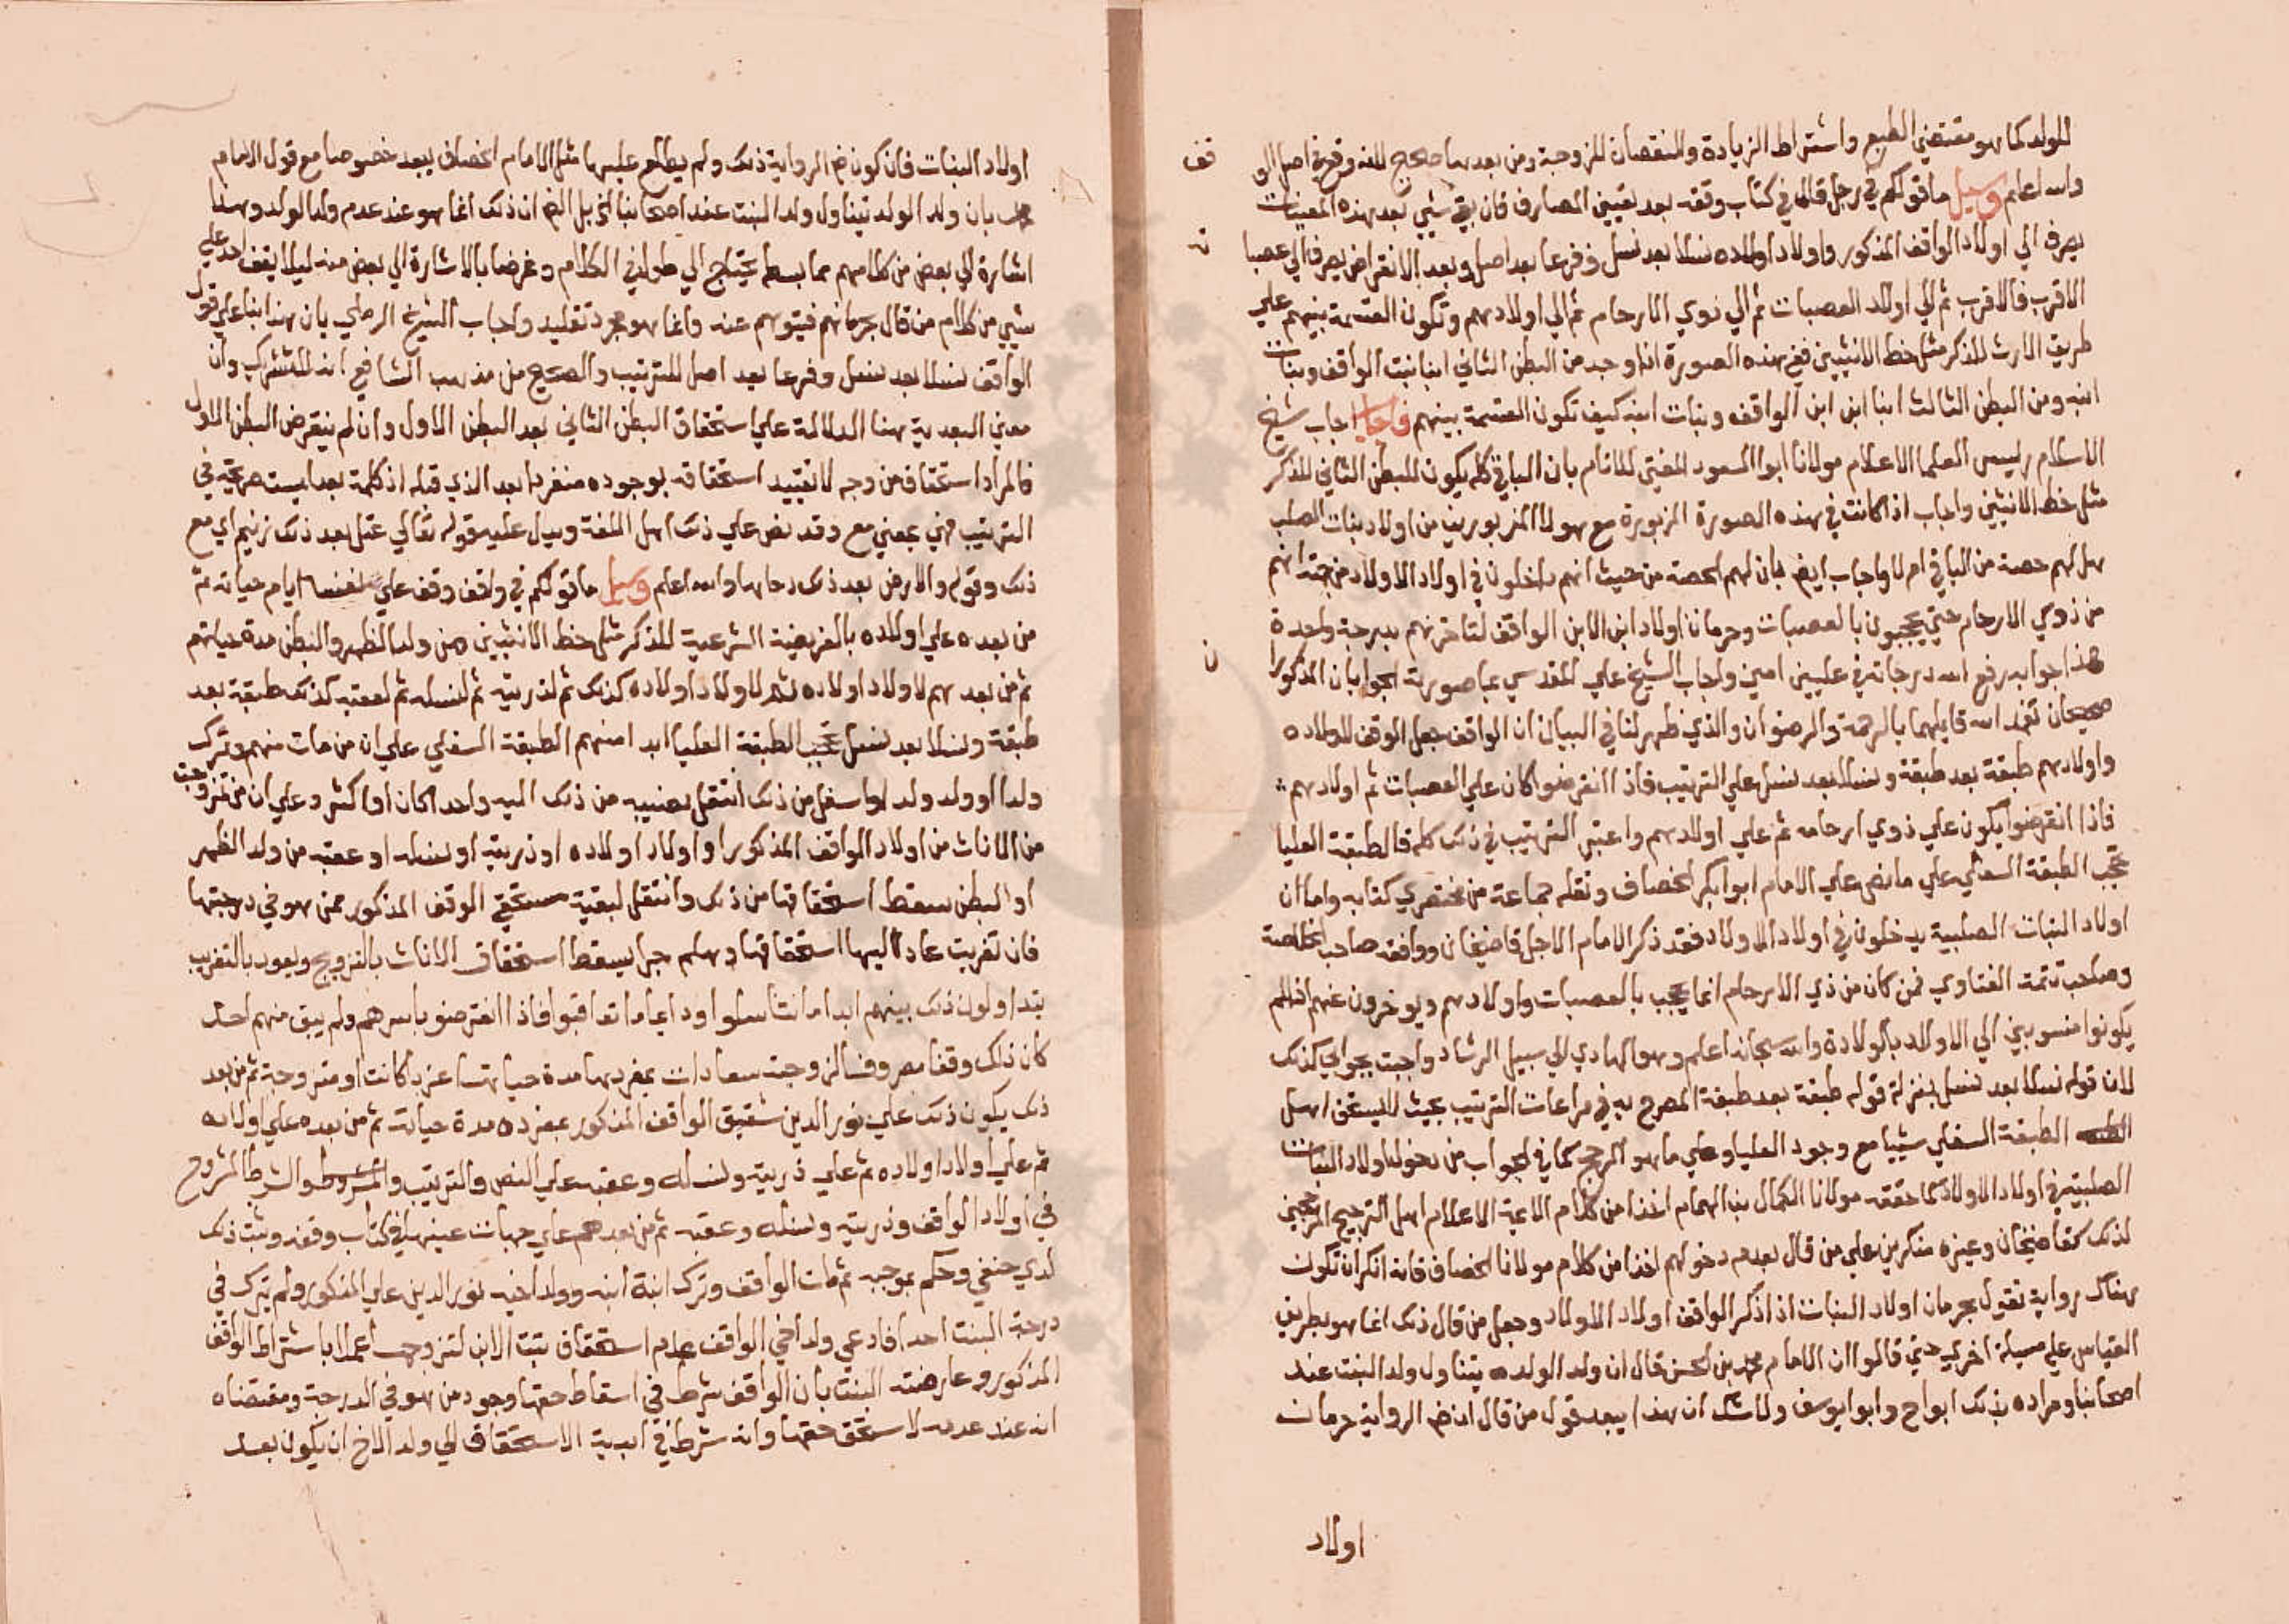 للولد كما هو مقتضي الطبع واشتراط الزيادة والنقصان للزوجة ومن بعدها صحيح
والله اعلم وسيل ما قولكم في رجل قال في كتاب وقفه بعد تعيين المصارف فان بقي شيي بعد هذه المعينات
يصرف الي اولاد الواقف المذكور واولاد اولاده نسلا بعد نسل وفرعا بعد اصل وبعد الانقراض يصرف الي عصبا
الاقرب فالاقرب ثم الي اولاد العصبات ثم الي ذوي الارحام ثم الي اولادهم وتكون القسمة بينهم علي
طريق الارث للذكر مثل حظ الانثيين ففي هذه الصورة اذا وجد من البطن الثاني ابنا بنت الواقف وبنات
ابنه ومن البطن الثالث ابنا ابن ابن الواقف وبنات ابنه كيف تكون القسمة بينهم فاجاب اجاب شيخ
الاسلام رييس العلما الاعلام مولانا ابو السعود المفتي للانام بان الباقي كله يكون للبطن الثاني للذكر
مثل حظ الانثيين واجاب اذا كانت في هذه الصورة المزبورة مع هولا المزبورين من اولاد بنات الصلب
هل لهم حصة من الباقي ام لا واجاب ايضا بان لهم الحصة من حيث انهم داخلون في اولاد الاولاد من جهة انهم
من ذوي الارحام حتي يحجبون بالعصبات وحرمان اولاد ابن الابن الواقف لتاخرهم بدرجة واحدة
هذا جوابه رفع الله درجاته في عليين امين واجاب الشيخ علي المقدسي بما صورته الجوابان المذكورا
صحيحان تغمد الله قايلهما بالرحمة والرضوان والذي ظهر لنا في البيان ان الواقف جعل الوقف للاولاده
واولادهم طبقة بعد طبقة ونسلا بعد نسل علي الترتيب فاذا انقرضوا كان علي العصبات ثم اولادهم
فاذا انقرضوا يكون علي ذوي ارحامه ثم علي اولادهم واعتبر الترتيب في ذلك كله فالطبقة العليا
تحجب الطبقة السفلي علي ما نص علي الامام ابو ابكر الخصاف ونقله جماعة من مختصري كتابه واما ان
اولاد البنات الصلبية يدخلون في اولاد الاولاد فقد ذكر الامام الاجل قاضيخان ووافقه صاحب الخلاصة
وصاحب تتمة الفتاوي فمن كان من ذي الارحام انما يحجب بالعصبات واولادهم ويوخرون عنهم اذا لم
يكونوا منسوبين الي الاولاد بالولادة والله سبحانه اعلم وهو الهادي الي سبيل الرشاد واجبت بجوابي كذلك
لان قوله نسلا بعد نسل بمنزلة قوله طبقة بعد طبقة المصرح به في مراعات الترتيب بحيث لا يستحق اهل
الطبقة السفلي شييا مع وجود العليا وعلي ما هو المرجح كما في الجواب من دخول اولاد البنات
الصلبية في اولاد الاولاد كما حققه مولانا الكمال بن الهمام اخذا من كلام الايمة الاعلام اهل الترجيح المرجحين
لذلك كقاضيخان وغيره منكرين علي من قال بعدم دخولهم اخذا من كلام مولانا الخصاف فانه انكر ان تكون
هناك رواية تقول بحرمان اولاد البنات اذ اذكر الواقف اولاد الاولاد وجعل من قال ذلك انما هو بطريق
القياس علي مسيلة اخري حتي قالوا ان الامام محمد بن الحسن قال ان ولد الولد يتناول ولد البنت عند
اصحابنا ومراده بذلك ابو ح وابو يوسف ولا شك ان هذا يبعد قول من قال ان في الرواية حرمان
اولاد
اولاد البنات فان كون الرواية ذلك ولم يطلع عليها مثل الامام الخصاف يبعد خصوصا مع قول الامام
بان ولد الولد يتناول ولد البنت عند اصحابنا ان ذلك انما هو عند عدم ولد الولد وهذا
اشارة الي بعض من كلامهم مما بسطه يحتاج الي طول في الكلام وغرضنا بالاشارة الي بعض منه ليلا يقف احد علي
شيي من كلام من قال بحرمانهم فيتوهم عنه وانما هو مجرد تقليد واجاب الشيخ الرملي بان هذا بنا علي قول
الواقف نسلا بعد نسل وفرعا بعد اصل للترتيب والصحيح من مذهب الشافعي انه للتشريك وان
معني البعدية هنا الدلالة علي استحقاق البطن الثاني بعد البطن الاول وان لم ينقرض البطن الاول
فالمراد استحقاق من وجه لا تقييد استحقاقه بوجوده منفردا بعد الذي قبله اذ كلمة بعد ليست صريحة في
الترتيب فهي بمعني مع وقد نص علي ذلك اهل اللغة ويدل عليه قوله تعالي عتل بعد ذلك زنيم اي مع
ذلك وقوله والارض بعد ذلك دحاها والله اعلم وسيل ما قولكم في واقف وقف علي نفسه ايام حياته ثم
من بعده علي اولاده بالفريضة الشرعية للذكر مثل حظ الانثيين من ولد الظهر والبطن مدة حياتهم
ثم من بعدهم لاولاد اولاده ثم لاولاد اولاده كذلك ثم لذريته ثم لنسله ثم لعقبه كذلك طبقة بعد
طبقة ونسلا بعد نسل تحجب الطبقة العليا ابدا منهم الطبقة السفلي علي ان من مات منهم وترك
ولدا او ولد ولد او اسفل من ذلك انتقل نصيبه من ذلك اليه واحدا كان او اكثر وعلي ان من تزوجت
من الاناث من اولاد الواقف المذكور او اولاد اولاده او ذريته او نسله او عقبه من ولد الظهر
او البطن سقط استحقاقها من ذلك وانتقل لبقية مستحقي الوقف المذكور ممن هو في درجتها
فان تغربت عاد اليها استحقاقها وهلم جرا يسقط استحقاق الاناث بالتزويج ويعود بالتغريب
يتداولون ذلك بينهم ابدا ما تناسلوا ودايما ما تعاقبوا فاذا انقرضوا باسرهم ولم يبق منهم احد
كان ذلك وقفا مصروفا لزوجته سعادات بمفردها مدة حياتها عزبا كانت او متزوجة ثم من بعد
ذلك يكون ذلك علي نور الدين شقيق الواقف المذكور بمفرده مدة حياته ثم من بعده علي اولاده
ثم علي اولاد اولاده ثم علي ذريته ونسله وعقبه علي النص والترتيب والشرط المشروح
في اولاد الواقف وذريته ونسله وعقبه ثم من بعدهم علي جهات عينها في كتاب وقفه وثبت ذلك
لدي حنفي وحكم بموجبه ثم مات الواقف وترك ابنة ابنه وولد اخيه نور الدين علي المذكور ولم يترك في
درجة البنت احدا فادعي ولد اخي الواقف عدم استحقاق بنت الابن لتزوجها عملا باشتراط الواقف
المذكور وعارضته البنت بان الواقف شرط في اسقاط حقها وجود من هو في الدرجة ومقتضاه
انه عند عدمه لا يستحق حقها وانه شرط في ابدية الاستحقاق الي ولد الاخ ان يكون بعد